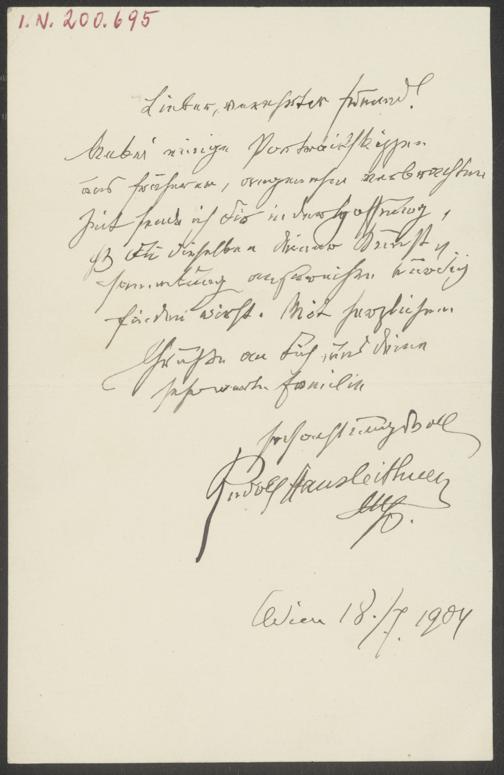 I.N. 200.695
Lieber, verehrter Freund!
Anbei einige Portraitskizzen
aus früherer, angenehm verbrachter
Zeit sende ich Dir in der Hoffnung,
ß Du dieselben Deiner Kunst
sammlung einzureihen würdig
finden wirst. Mit herzlichen
Grüßen an Dich und Deine
sehr werte Familie
hochachtungsvoll
Rudolf Hausleithner
Wien 18./7. 1904